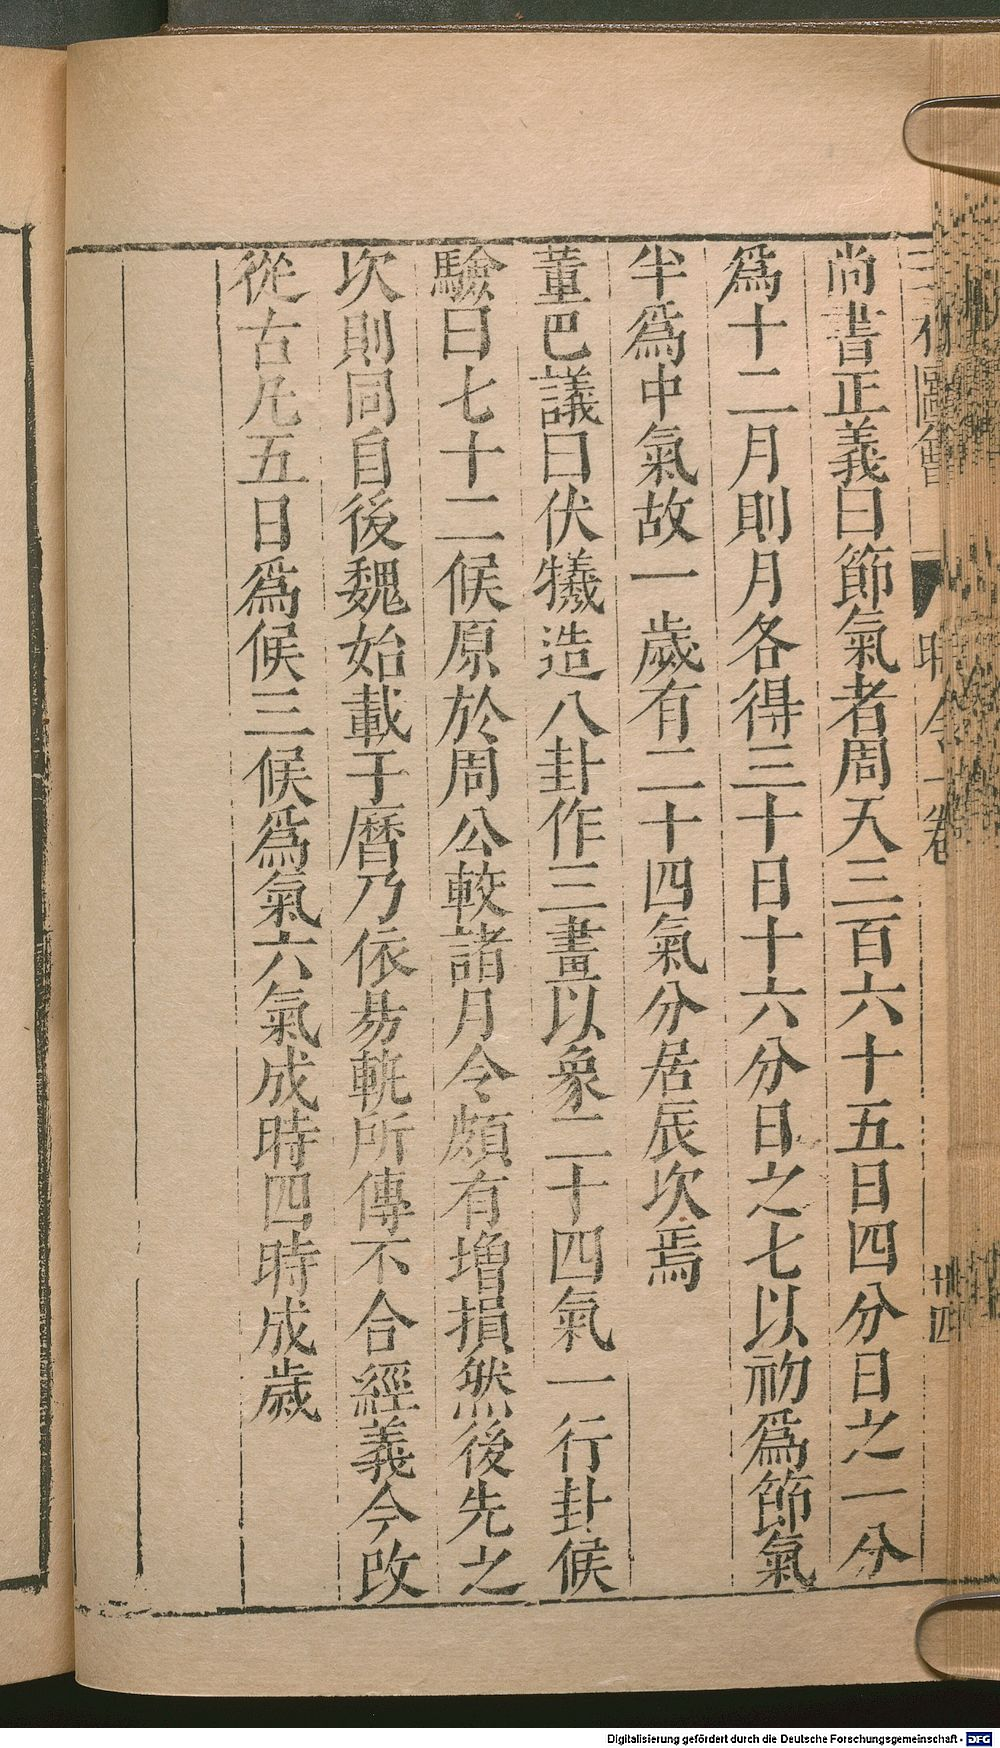 尚書正義曰節氣者周天三百六十五日四分日之一分
爲十二月則月各得三十日十六分日之七以初爲節氣
半爲中氣故一歲有二十四氣分居辰次焉
董巴議曰伏犧造八卦作三畫以象二十四氣一行卦候
驗曰七十二候原於周公較諸月令頗有增損然後先之
次則同自後魏始載于曆乃依易軌所傳不合經義今改
從古凡五日爲候三候爲氣六氣成時四時成歲
圖會
時令一卷
廿四
Digitalisierung gefördert durch die Deutsche Forschungsgemeinschaft - DFG